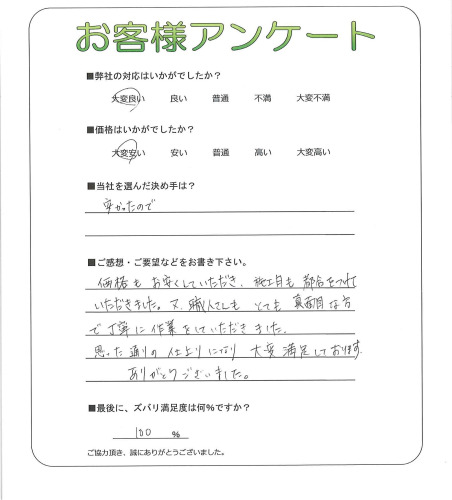 お客様アンケート
■弊社の対応はいかがでしたか？
大変良い 良い 普通 不満 大変不満
■価格はいかがでしたか？
大変安い 安い 普通 高い 大変高い
■当社を選んだ決め手は？
安かったので
■ご感想・ご要望などをお書き下さい。
価格も お安くしていただき、施工日も 都合をつけて
いただきました。又、職人さんも とても 真面目な方
で丁寧に作業をしていただきました。
思った通りの仕上りになり 大変満足しております。
ありがとうございました。
■最後に、ズバリ満足度は何％ですか？
100 ％
ご協力頂き、誠にありがとうございました。